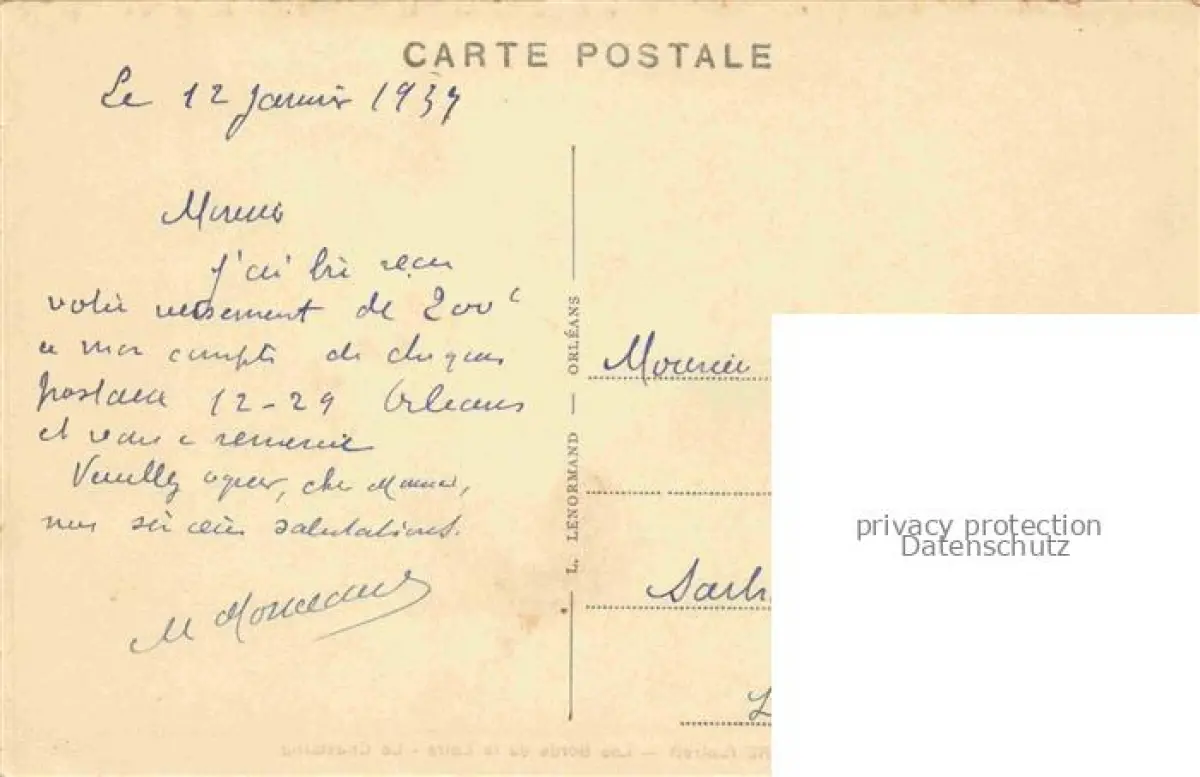 CARTE POSTALE
Le 12 Janvier 1937
Monsieur
J'ai bien reçu
votre versement de 200
a mon compte de cheques
postaux 12-29 Orleans
et vous en remercie
Veuillez agréer, cher Monsieur,
mes sincères salutations.
M
L. LENORMAND — ORLÉANS
Monsieur
privacy protection
Datenschutz